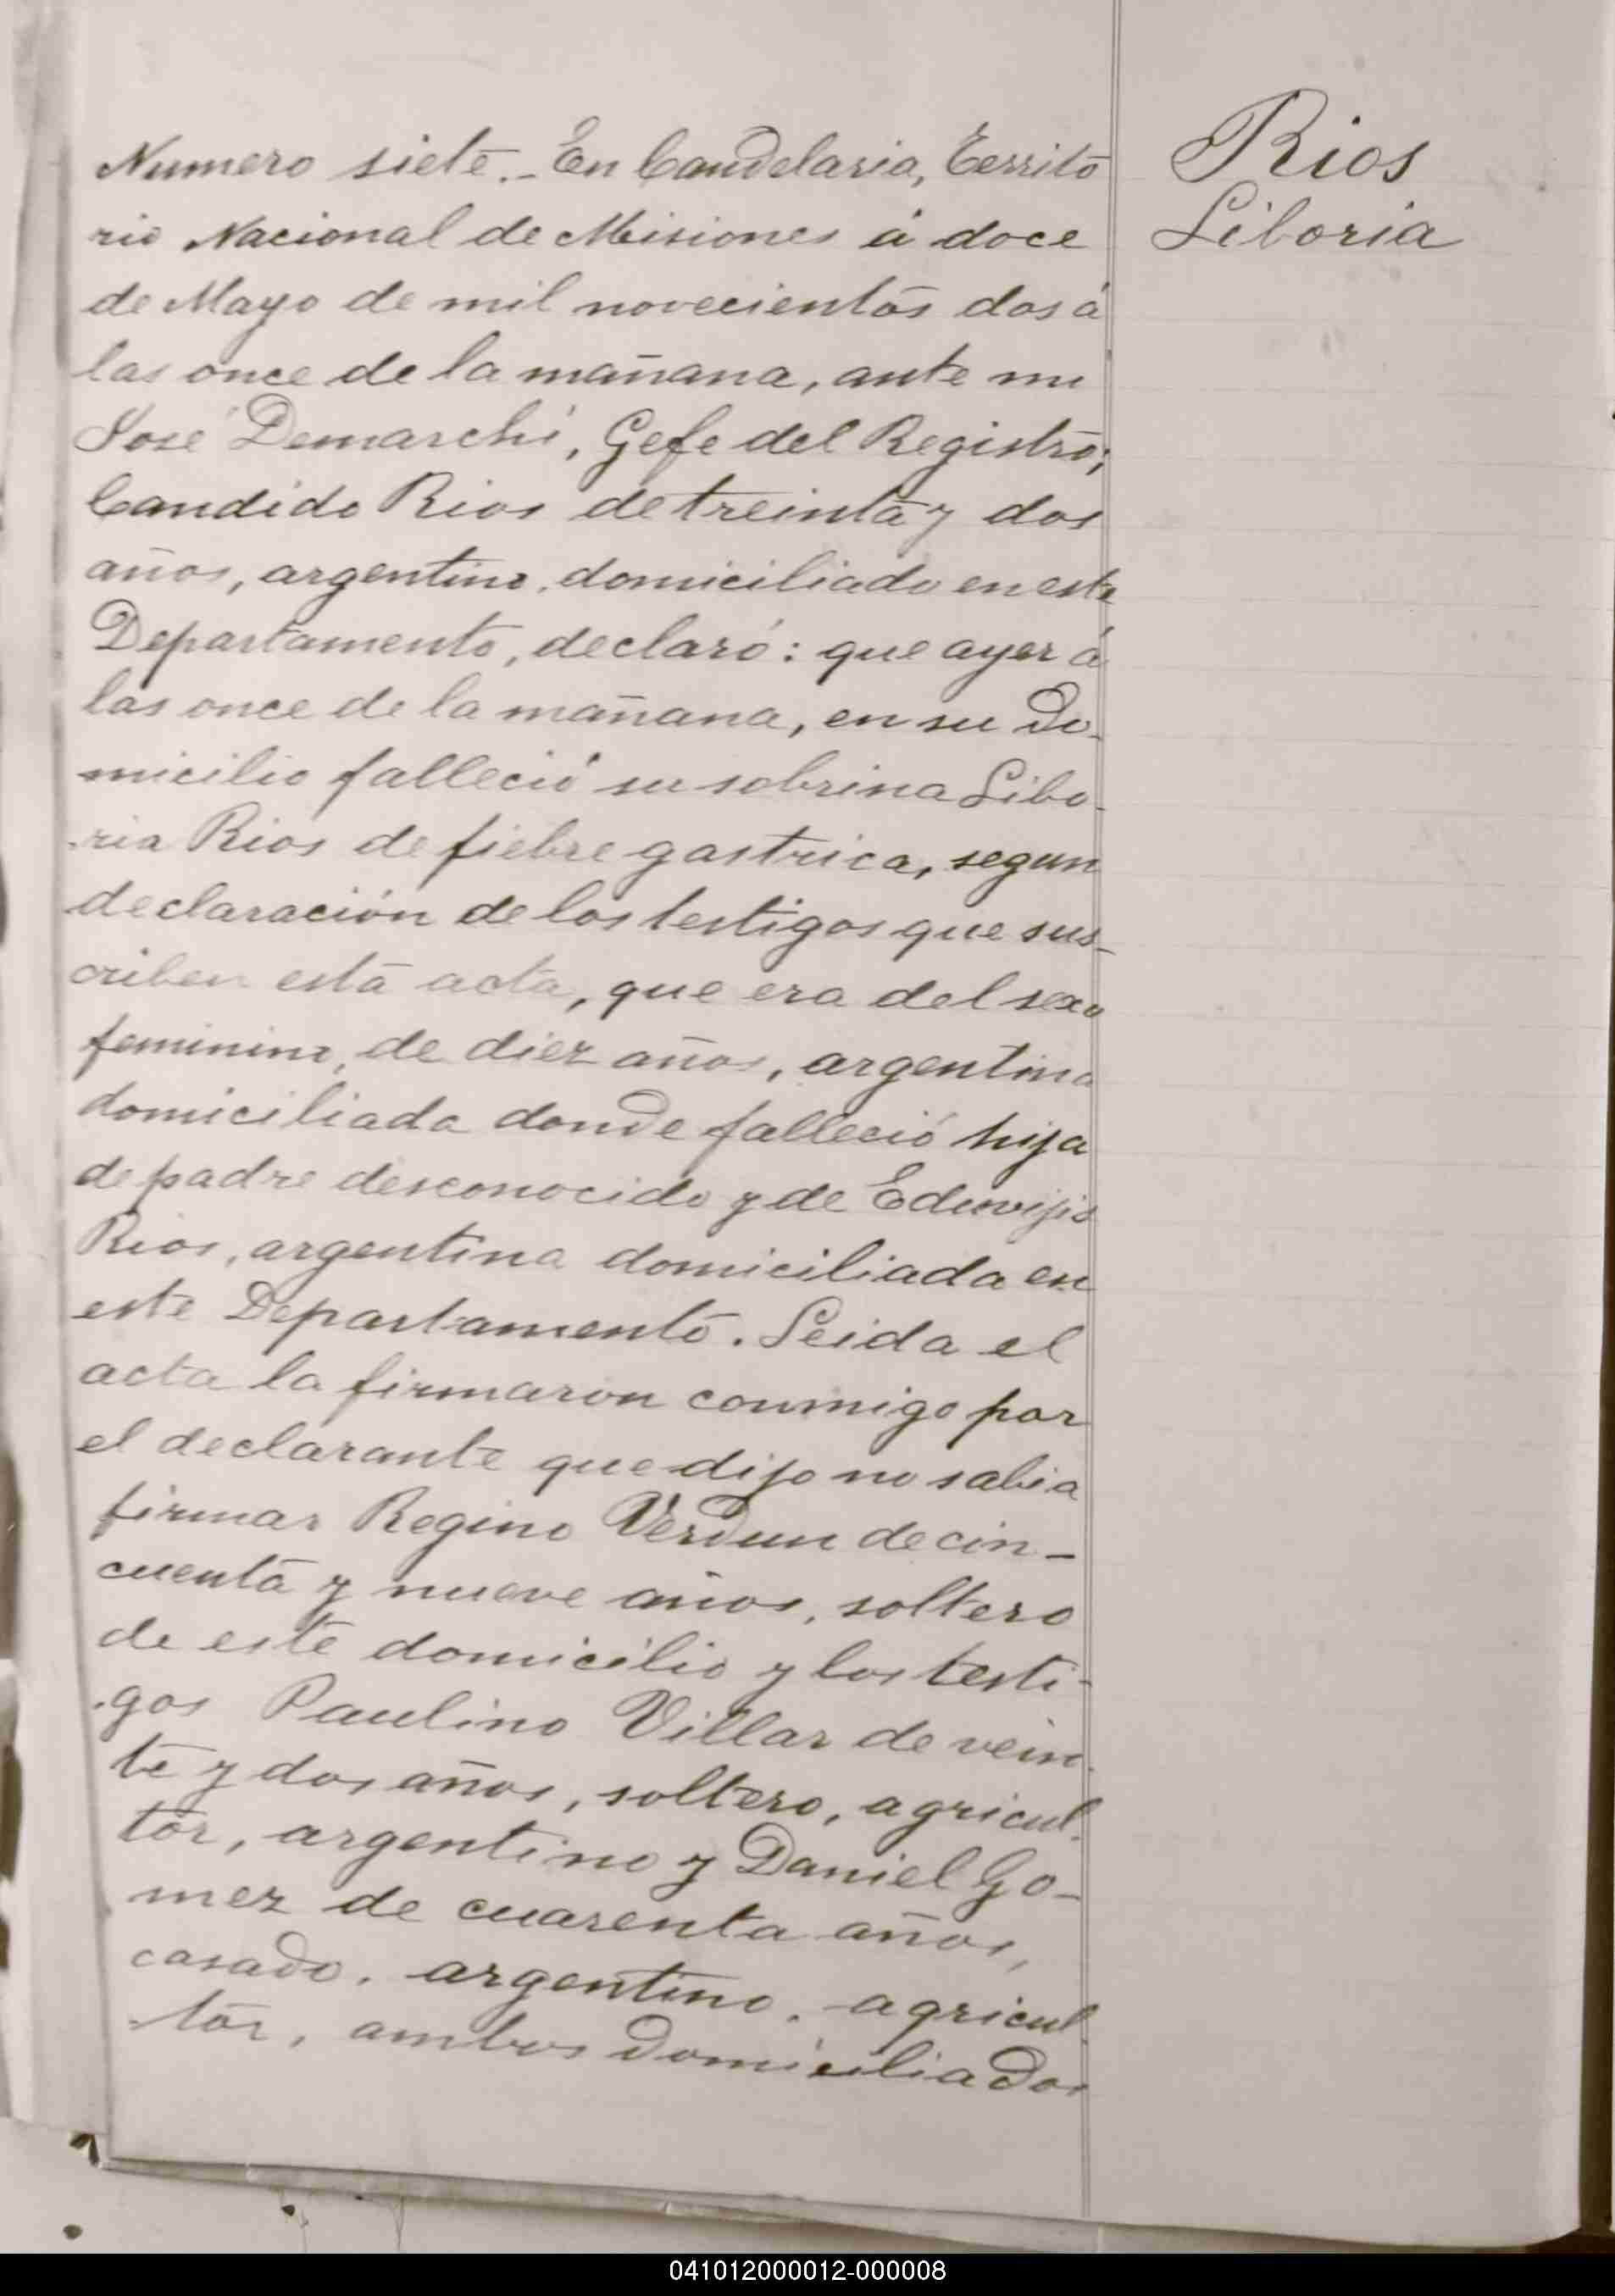 Numero siete.- En Candelaria, Territo
rio Nacional de Misiones á doce
de Mayo de mil novecientos dos á
las once de la mañana, ante mi
José Demarchi, Gefe del Registro;
Candido Rios de treinta y dos
años, argentino, domiciliado en este
Departamento, declaró: que ayer á
las once de la mañana, en su do-
micilio falleció su sobrina Libo-
ria Rios de fiebre gastrica, segun
declaración de los testigos que sus-
criben esta acta, que era del sexo
feminino, de diez años, argentina
domiciliada donde falleció hija
de padre desconocido y de Eduvijis
Rios, argentina domiciliada en
este Departamento. Leida el
acta la firmaron conmigo por
el declarante que dijo no sabia
firmar Regino Verdun de cin-
cuenta y nueve años, soltero
de este domicilio y los testi-
gos Paulino Villar de vein
te y dos años, soltero, agricul-
tor, argentino y Daniel Go-
mez de cuarenta años,
casado, argentino, agricul-
tor, ambos domiciliados
Rios
Liboria
041012000012-000008